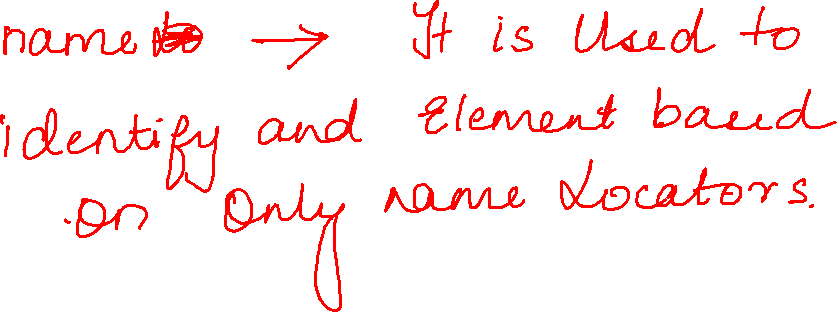 name → It is Used to
identify and Element based
on Only name Locators.